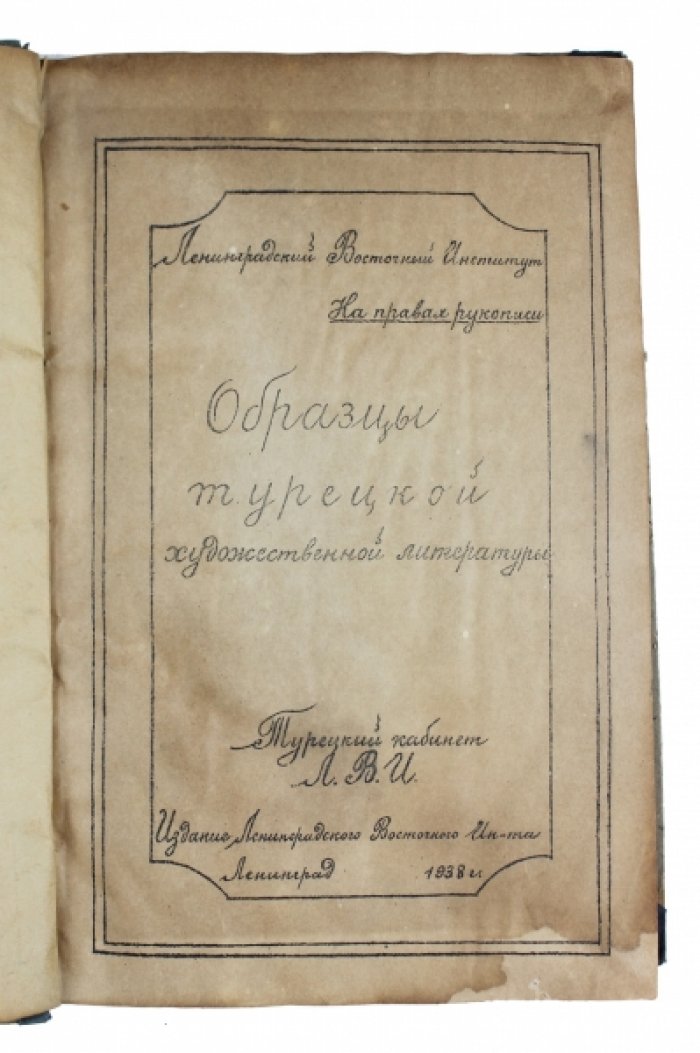 Ленинградский Восточный Институт
На правах рукописи
Образцы
турецкой
художественной литературы
Турецкий кабинет
Л. В. И.
Издание Ленинградского Восточного Ин-та
Ленинград 1938 г.